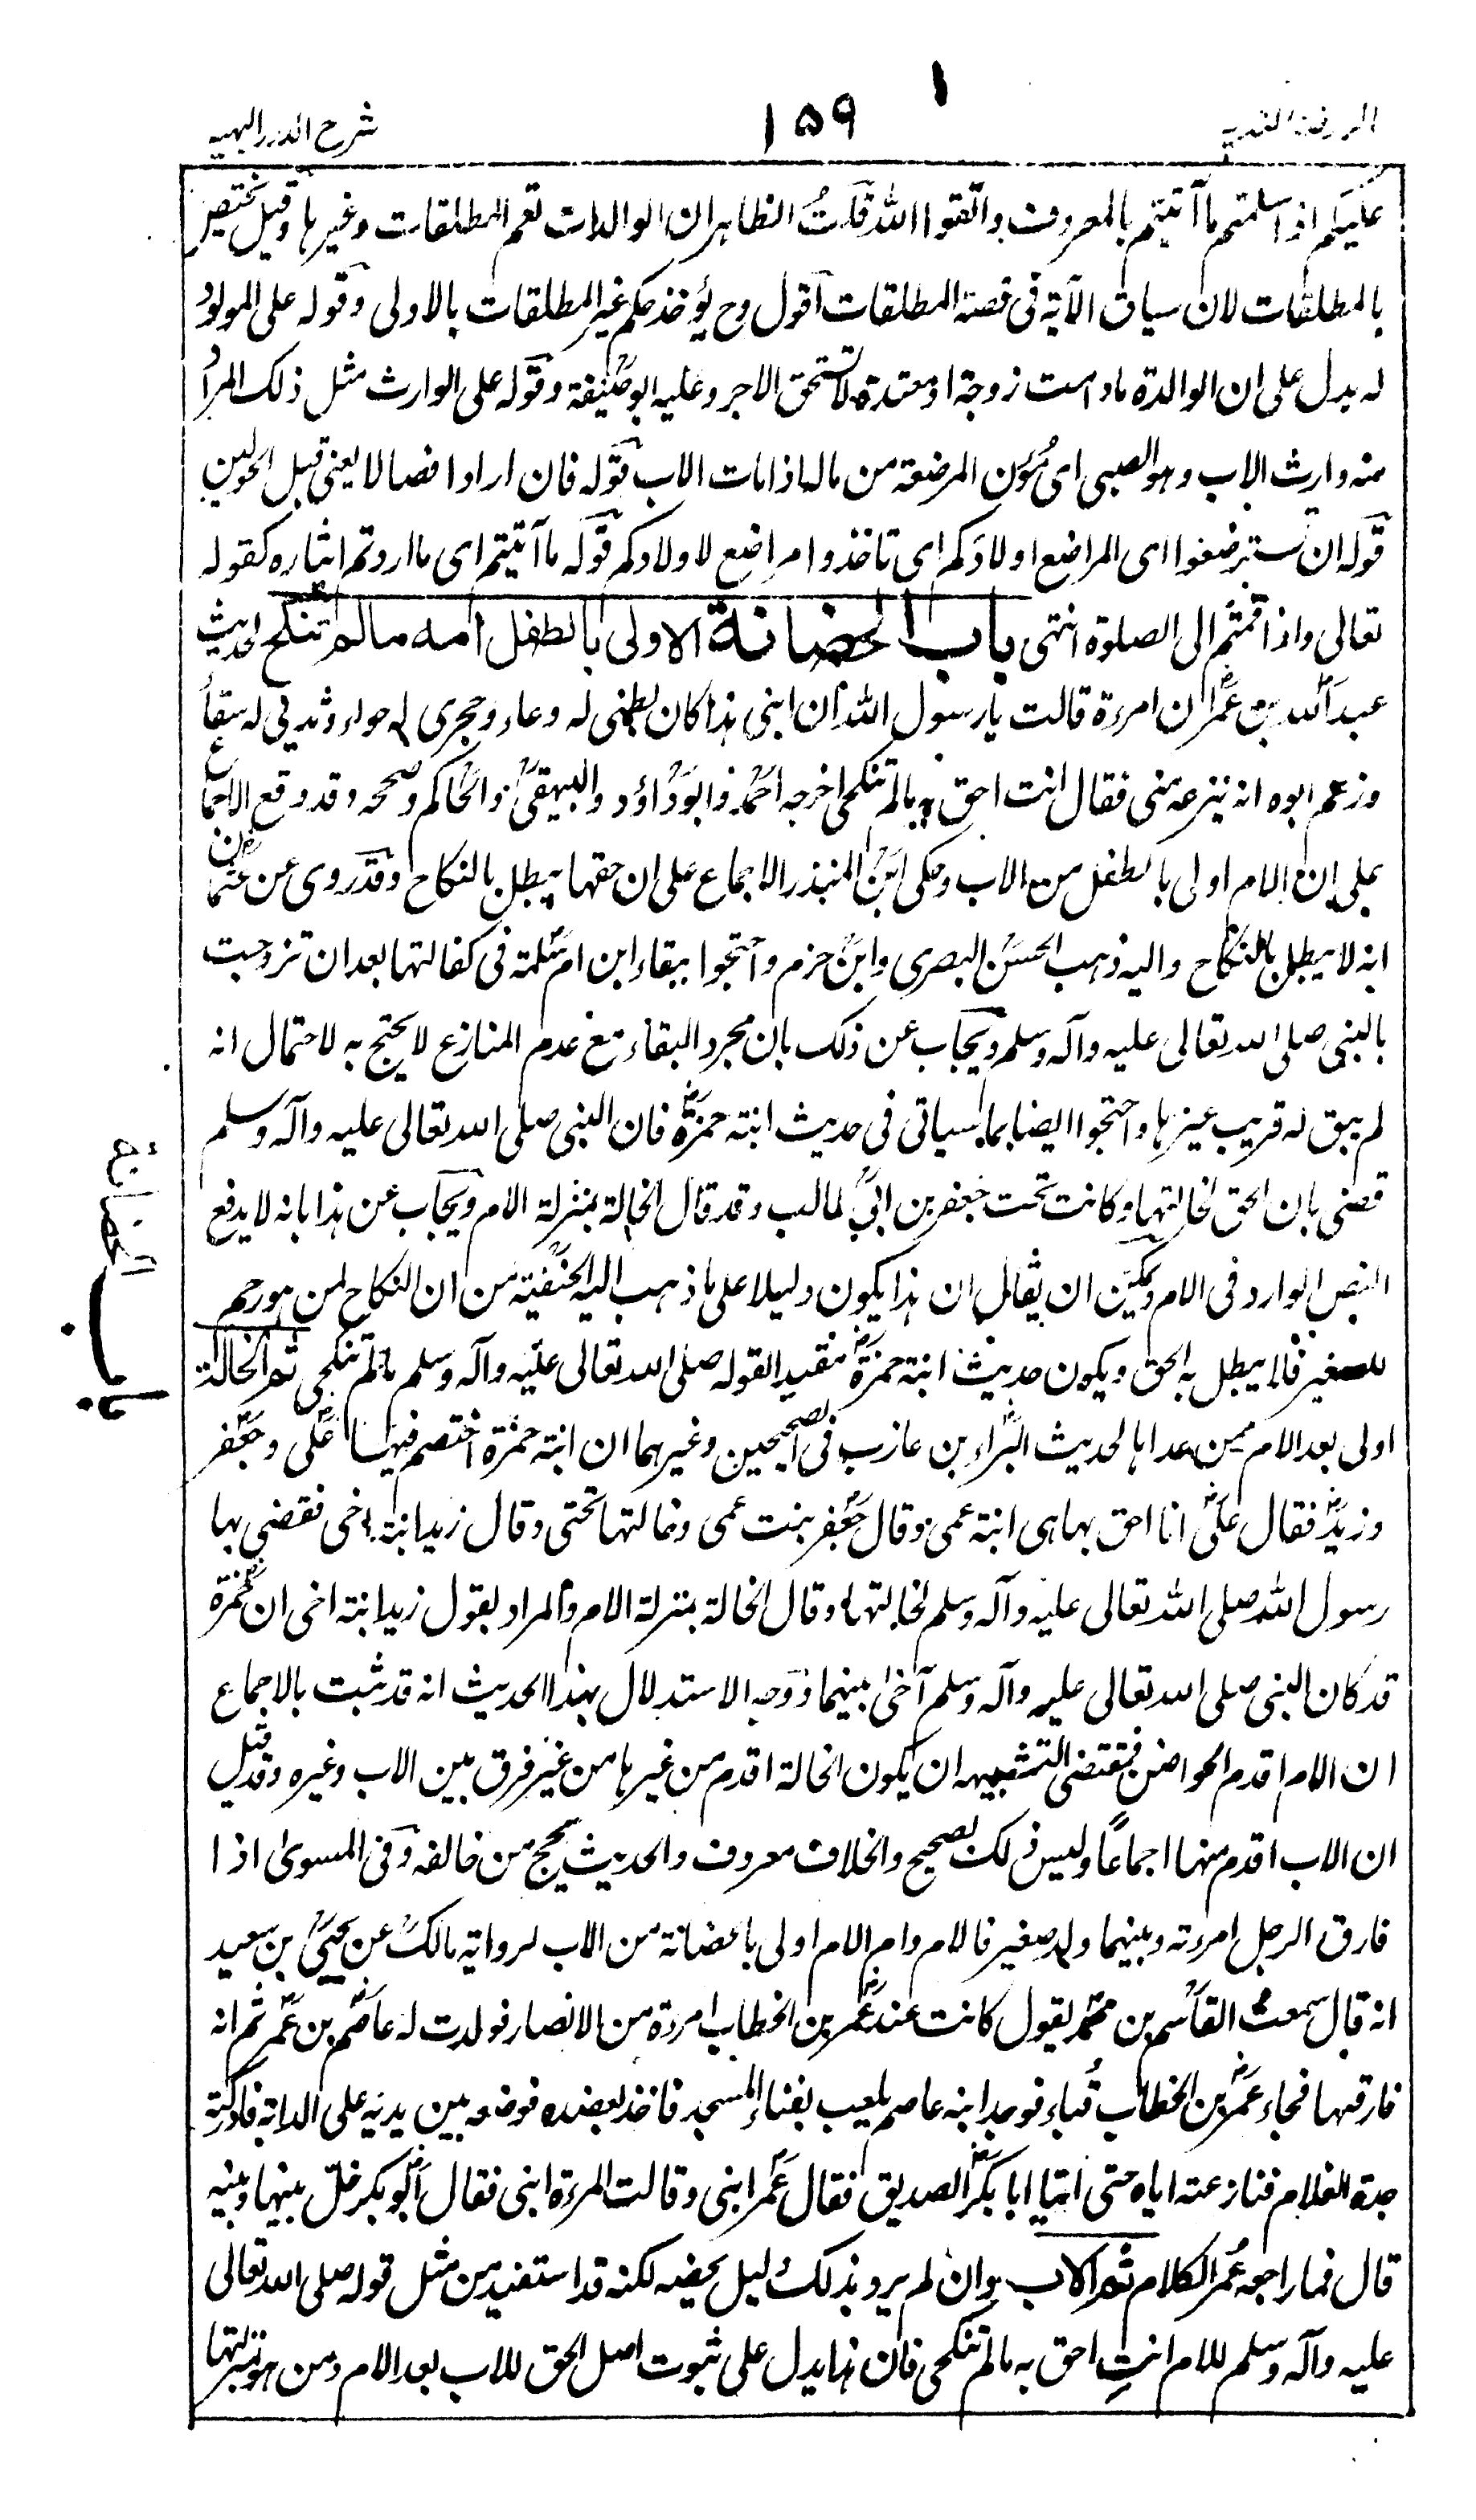 الروضة الندية
١٥٩
شرح الدرر البهية
عليكم اذا سلمتم ما آتيتم بالمعروف واتقوا الله قلت الظاهر ان الوالدات تعم المطلقات وغيرها وقيل تختص
بالمطلقات لان سياق الآية فى قصة المطلقات اقول وح يؤخذ حكم غير المطلقات بالاولى وقوله على المولود
له يدل على ان الوالدة مادامت زوجة او معتدة لا تستحق الاجر وعليه ابوحنيفة وقوله على الوارث مثل ذلك المراد
منه وارث الاب وهو الصبى اى مؤن المرضعة من ماله اذا مات الاب قوله فان ارادا فصالا يعنى قبل الحولين
قوله ان تسترضعوا اى المراضع اولادكم اى تاخذوا مراضع لاولادكم قوله ما آتيتم اى ما اردتم ايتاءه كقوله
تعالى واذا قمتم الى الصلوة انتهى باب الحضانة الاولى بالطفل امه مالم تنكح لحديث
عبدالله بن عمرو ان امرءة قالت يا رسول الله ان ابنى هذا كان بطنى له وعاء وحجرى له حواء وثديى له سقاء
وزعم ابوه انه ينزعه منى فقال انت احق به مالم تنكحى اخرجه احمد وابوداؤد والبيهقى والحاكم وصححه وقد وقع الاجماع
على ان الام اولى بالطفل من الاب وحكى ابن المنذر الاجماع على ان حقها يبطل بالنكاح وقد روى عن عثمان
انه لا يبطل بالنكاح واليه ذهب الحسن البصرى وابن حزم واحتجوا ببقاء ابن ام سلمة فى كفالتها بعد ان تزوجت
بالنبى صلى الله تعالى عليه وآله وسلم ويجاب عن ذلك بان مجرد البقاء مع عدم المنازع لا يحتج به لاحتمال انه
لم يبق له قريب غيرها واحتجوا ايضا بما سياتى فى حديث ابنة حمزة فان النبى صلى الله تعالى عليه وآله وسلم
قضى بان الحق لخالتها وكانت تحت جعفر بن ابى طالب وقد قال الخالة بمنزلة الام ويجاب عن هذا بانه لا يدفع
النص الوارد فى الام ويمكن ان يقال ان هذا يكون دليلا على ما ذهب اليه الحنفية من ان النكاح لمن هو رحم
للصغير فلا يبطل به الحق ويكون حديث ابنة حمزة مقيد القوله صلى الله تعالى عليه وآله وسلم مالم تنكحى ثم الخالة
اولى بعد الام ممن عداها لحديث البراء بن عازب فى الصحيحين وغيرهما ان ابنة حمزة اختصم فيها على وجعفر
وزيد فقال على انا احق بها هى ابنة عمى وقال جعفر بنت عمى وخالتها تحتى وقال زيد ابنة اخى فقضى بها
رسول الله صلى الله تعالى عليه وآله وسلم لخالتها وقال الخالة بمنزلة الام والمراد بقول زيد ابنة اخى ان حمزة
قد كان النبى صلى الله تعالى عليه وآله وسلم آخى بينهما ووجه الاستدلال بهذا الحديث انه قد ثبت بالاجماع
ان الام اقدم الحواضن فمقتضى التشبيه ان يكون الخالة اقدم من غيرها من غير فرق بين الاب وغيره وقد قيل
ان الاب اقدم منها اجماعا وليس ذلك بصحيح والخلاف معروف والحديث يحج من خالفه وفى المسوى اذا
فارق الرجل امرءته وبينهما ولد صغير فالام وام الام اولى بالحضانة من الاب لرواية مالك عن يحيى بن سعيد
انه قال سمعت القاسم بن محمد يقول كانت عند عمر بن الخطاب امرءة من الانصار فولدت له عاصم بن عمر ثم انه
فارقها فجاء عمر بن الخطاب قباء فوجد ابنه عاصم يلعب بفناء المسجد فاخذ بعضده فوضعه بين يديه على الدابة فادركته
جدة الغلام فنازعته اياه حتى اتيا ابا بكر الصديق فقال عمر ابنى وقالت المرءة ابنى فقال ابو بكر خل بينها وبينه
قال فما راجعه عمر الكلام ثم الاب وان لم يرد بذلك دليل يخصه لكنه قد استفيد من مثل قوله صلى الله تعالى
عليه وآله وسلم للام انت احق به مالم تنكحى فان هذا يدل على ثبوت اصل الحق للاب بعد الام ومن هو بمنزلتها
باب الحضانة